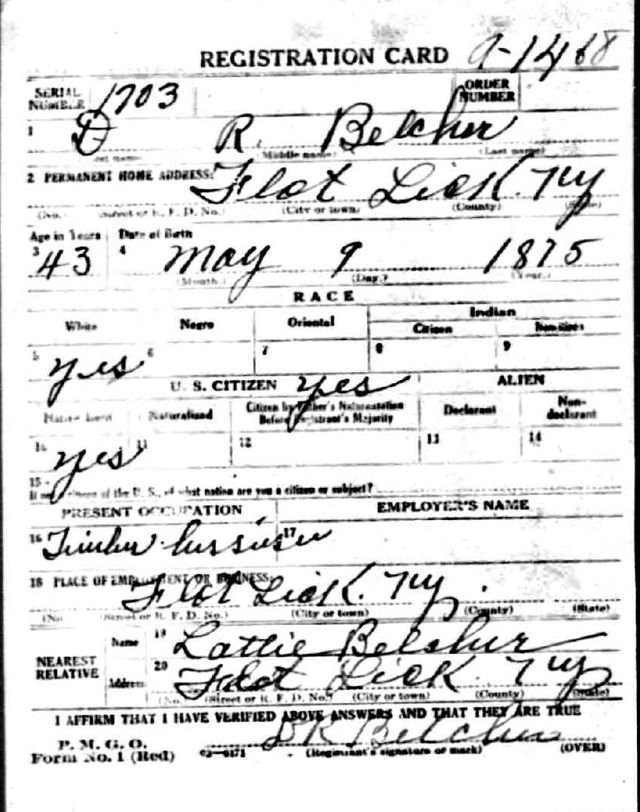 REGISTRATION CARD 9-1468
SERIAL NUMBER 1703 ORDER NUMBER
1 D R. Belcher
(Middle name) (Last name)
2 PERMANENT HOME ADDRESS: Flat Lick. Ky
(No.) (Street or R. F. D. No.) (City or town) (County) (State)
Age in Years Date of Birth
3 43 4 May 9 1875
(Month.) (Day.) (Year.)
RACE
White Negro Oriental Indian
Citizen Noncitizen
5 yes 6 7 8 9
U. S. CITIZEN yes ALIEN
Native Born Naturalized Citizen by Father's Naturalization Before Registrant's Majority Declarant Non-declarant
10 yes 11 12 13 14
15 If not a citizen of the U. S., of what nation are you a citizen or subject?
PRESENT OCCUPATION EMPLOYER'S NAME
16 Timber 17
18 PLACE OF EMPLOYMENT OR BUSINESS: Flat Lick. Ky.
(No. (Street or R. F. D. No.) (City or town) (County) (State)
NEAREST RELATIVE Name 19 Lattie Belcher
Address 20 Flat Lick Ky
(No.) (Street or R. F. D. No.) (City or town) (County) (State)
I AFFIRM THAT I HAVE VERIFIED ABOVE ANSWERS AND THAT THEY ARE TRUE
P. M. G. O.
Form No. 1 (Red) 03-6171 D R Belcher
(Registrant's signature or mark) (OVER)